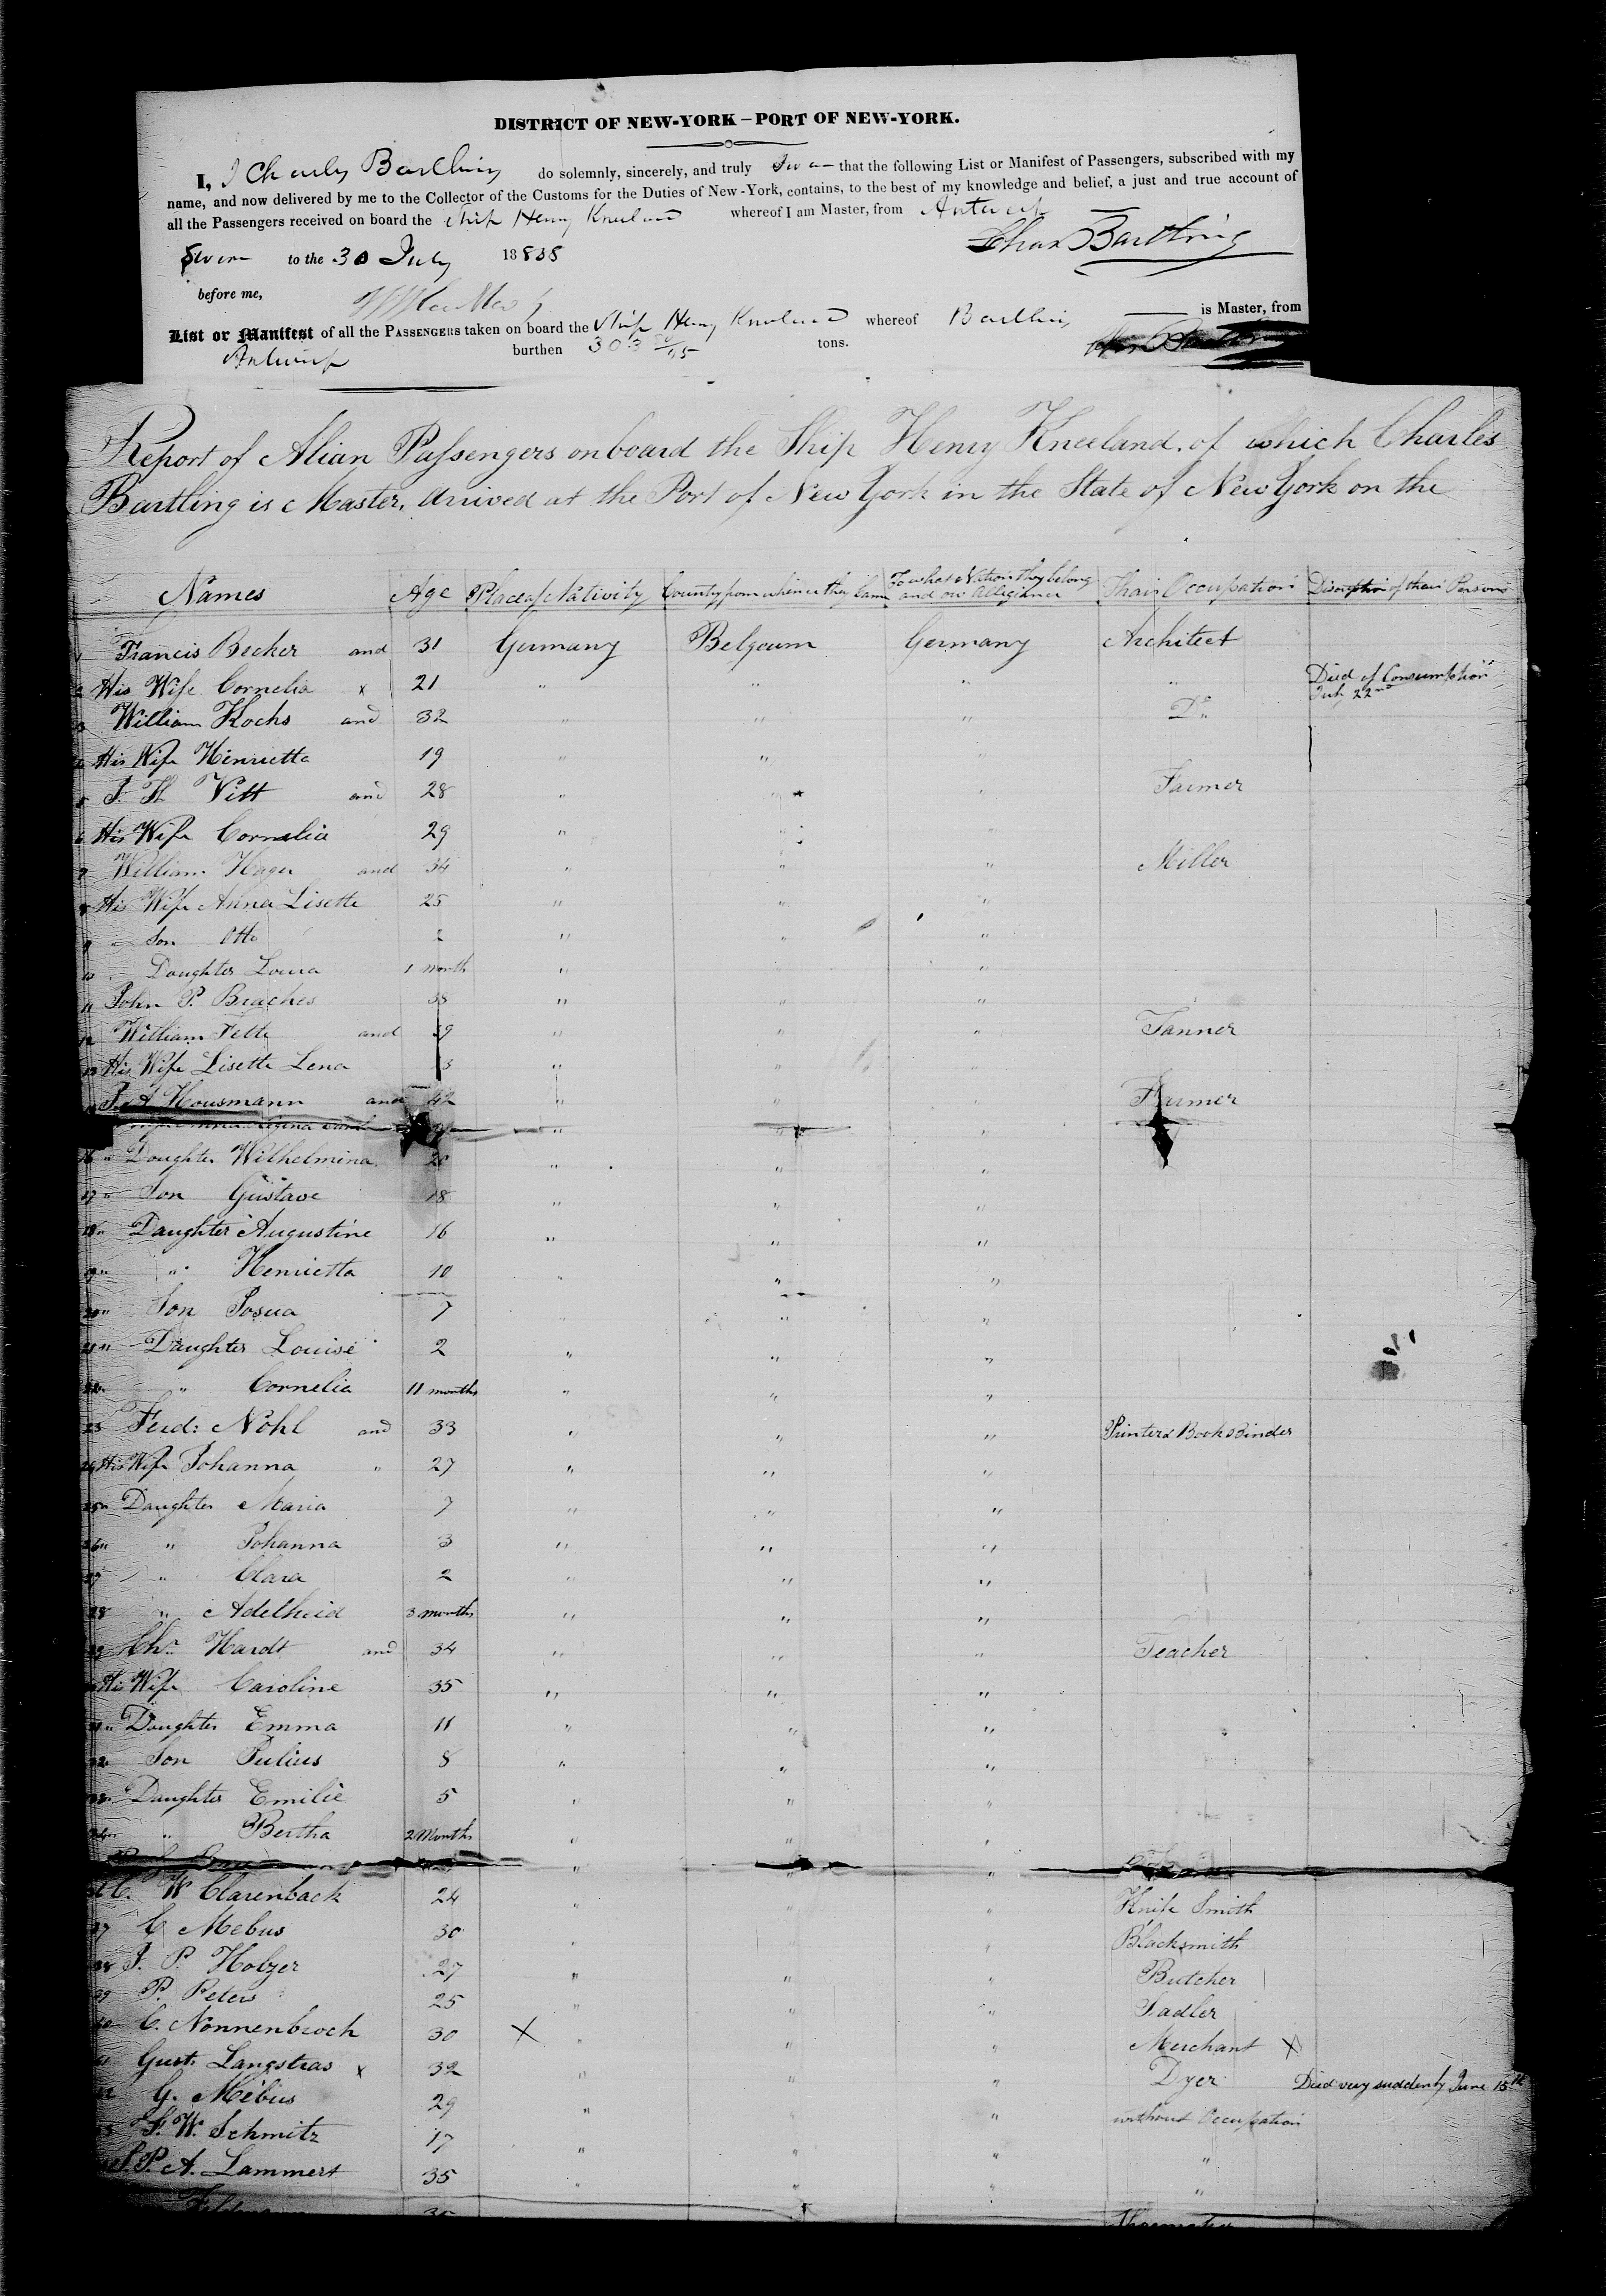 DISTRICT OF NEW-YORK – PORT OF NEW-YORK.
I, J Charles Bartling do solemnly, sincerely, and truly Swear that the following List or Manifest of Passengers, subscribed with my
name, and now delivered by me to the Collector of the Customs for the Duties of New-York, contains, to the best of my knowledge and belief, a just and true account of
all the Passengers received on board the Ship Henry Kneeland whereof I am Master, from Antwerp
Sworn to the 30 July 18838 Chas Bartling
before me,
List or Manifest of all the PASSENGERS taken on board the Ship Henry Kneeland whereof Bartling is Master, from
Antwerp burthen 303 /95 tons.
Report of Alian Passengers on board the Ship Henry Kneeland, of which Charles
Bartling is Master, arrived at the Port of New York in the State of New York on the
Names Age Place of Nativity County from whence they Came To what Nation they belong and ow Allegiance Thair Occupation Discription of thair Persons
1 Francis Becker and 31 Germany Belgeum Germany Architect
2 His Wife Cornelia x 21 " " " " Died of Consumption July 22nd
3 William Kochs and 32 " " " Do
4 His Wife Henrietta 19 " " "
5 J. H. Vitt and 28 " " " Farmer
6 His Wife Cornelia 29 " " "
7 William Hager and 34 " " " Miller
8 His Wife Anna Lisette 25 " " "
9 " Son Otto 2 " " "
10 " Daughter Louisa 1 month " " "
11 John P. Braches 38 " " "
12 William Fette and 39 " " " Tanner
13 His Wife Lisette Lena 3 " " "
P. A Housmann and 42 " " " Farmer
" " "
16 " Doughter Wilhelmina 20 " " "
17 " Son Gustave 18 " " "
18 " Daughter Augustine 16 " " "
19 " " Henrietta 10 " " "
20 " Son Josua 7 " "
21 " Daughter Louise 2 " " "
22 " " Cornelia 11 months " " "
23 Ferd: Nohl and 33 " " " Printer & Book Binder
24 His Wife Johanna " 27 " " "
25 " Daughter Maria 7 " " "
26 " " Johanna 3 " " "
27 " Clara 2 " " "
28 " Adelheid 3 months " " "
29 Chr. Hardt and 34 " " " Teacher
His Wife Caroline 35 " " "
31 " Daughter Emma 11 " " "
32 " Son Julius 8 " " "
33 " Daughter Emilie 5 " " "
34 " " Bertha 2 Months " " "
" " "
36 C. W Clarenback 24 " " " Knife Smith
37 C Mebus 30 " " " Blacksmith
38 J. P. Holzer 27 " " " Butcher
39 P. Peters 25 " " " Sadler
40 C. Nonnenbroch 30 X " " " Merchant X
41 Gust. Langstras x 32 " " " Dyer Died very suddenly June 15th
42 G. Mebus 29 " " without Occupation
F. W. Schmitz 17 " " " "
J. P. A. Lammert 35 " " " "